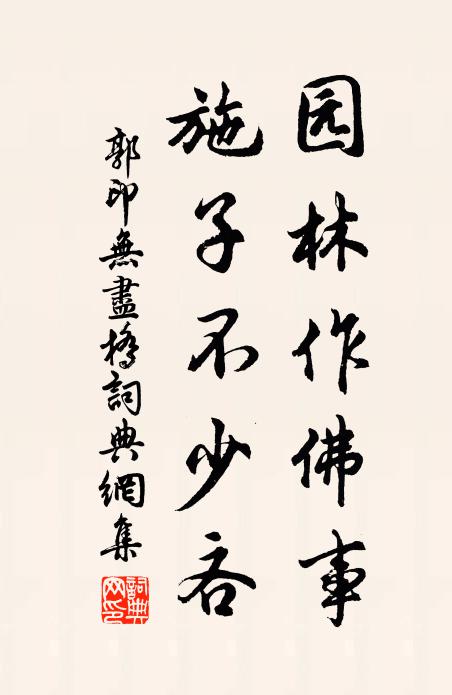 园林作佛事
施子不少吝
郭印無盡橋詞典網集
詞典网印